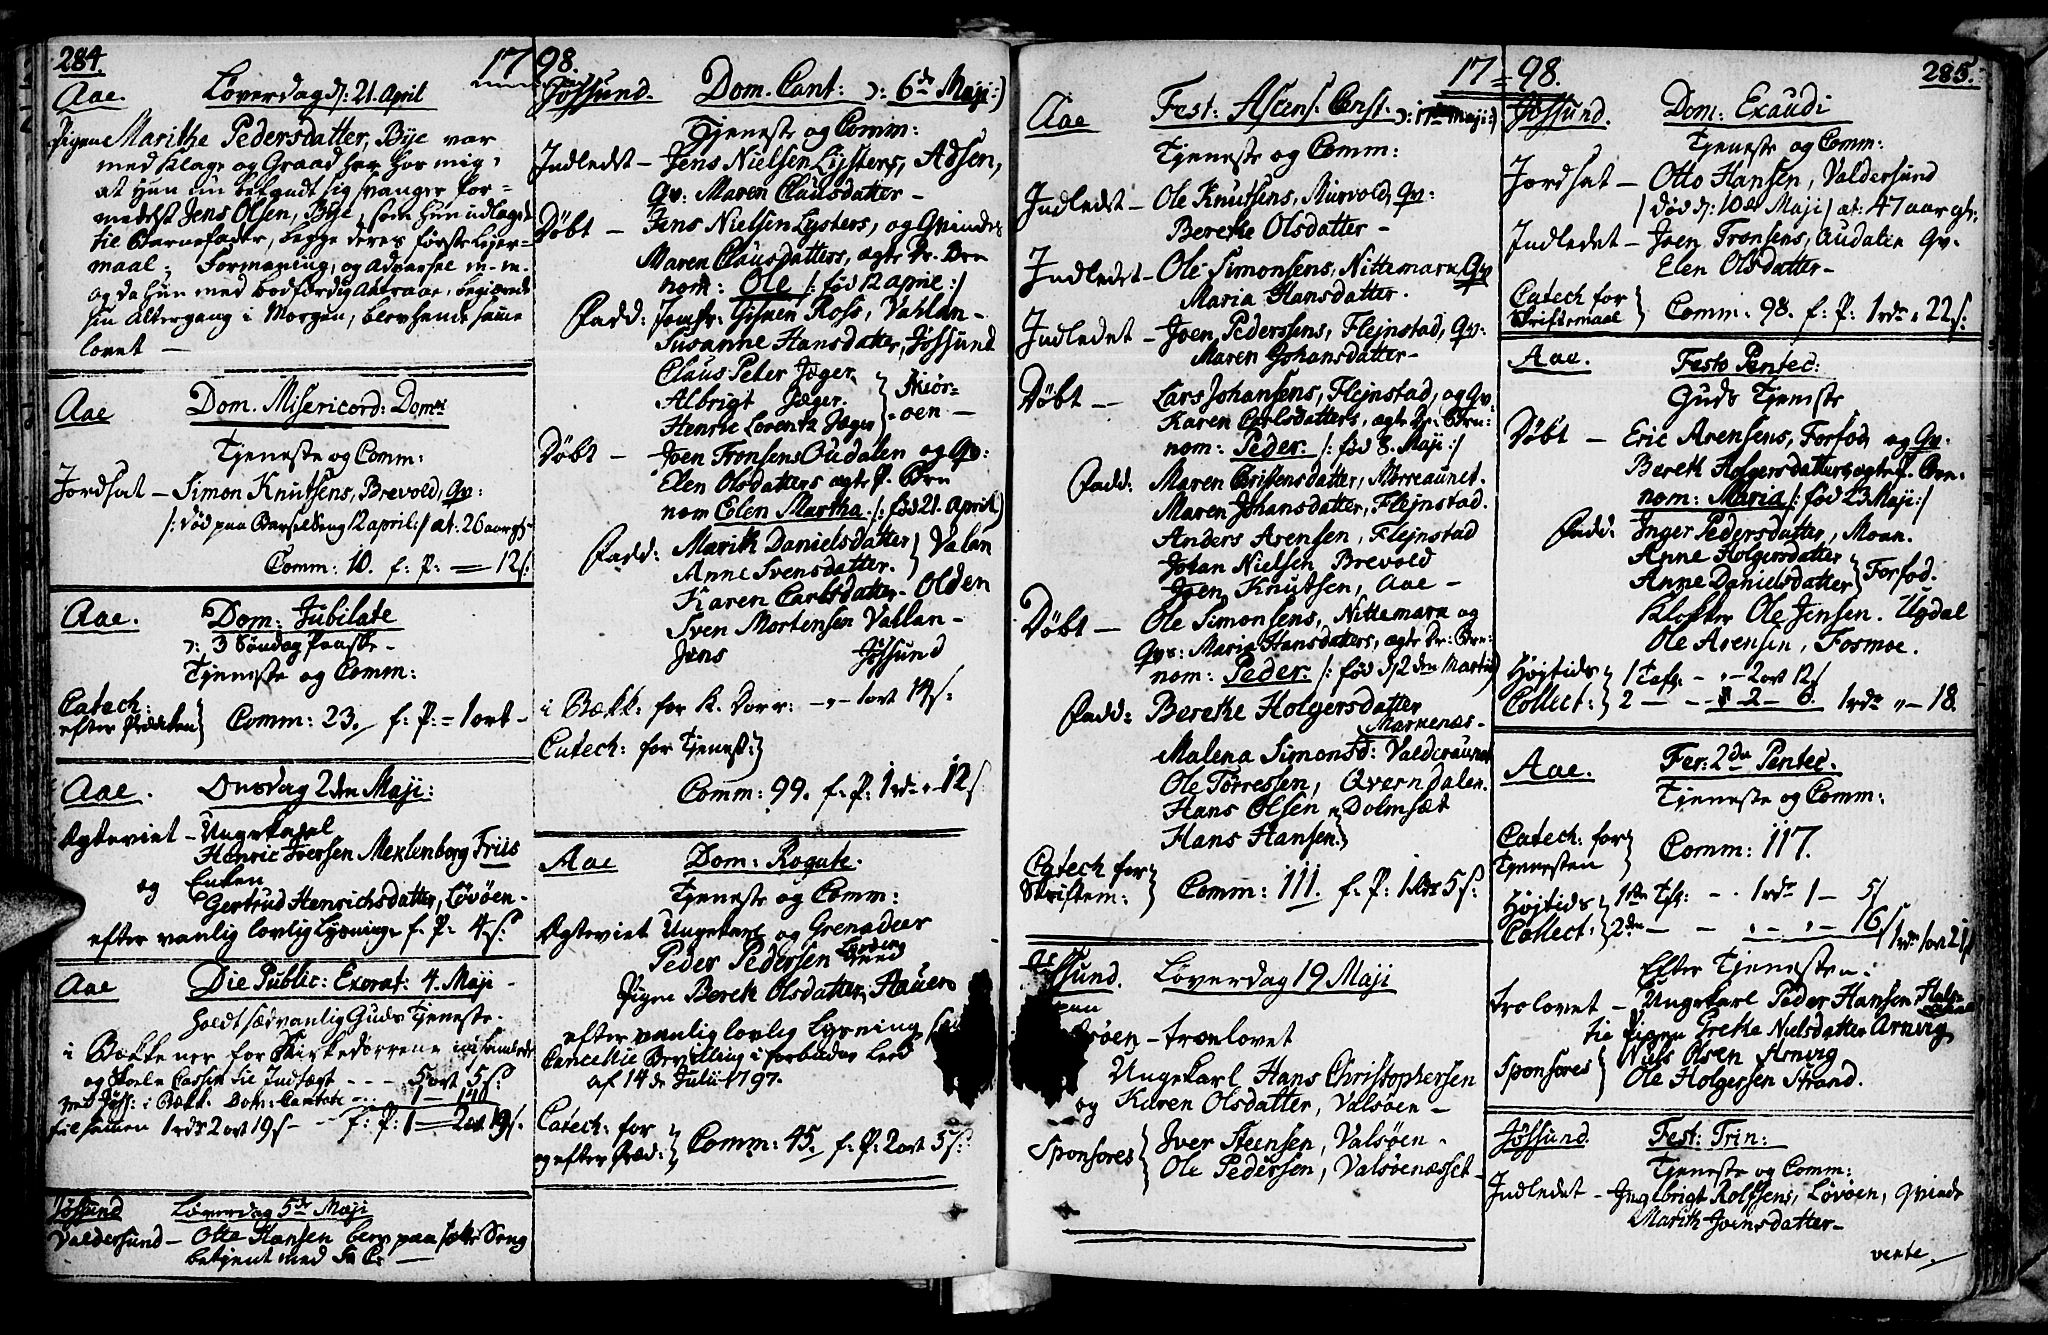 284.
1798.
Aae. Løverdag d: 21. April
Pigen Marithe Pedersdatter, Bye var
med Klage og Graad her hos mig,
at hun nu befandt sig svanger for=
medelst Jens Olsen, Bye, som hun udlagde
til Barnefader, begge deres første Lejer=
maal; Formaning, og Advarsel m. m.
og da hun med bodfærdig Attraae, begiærede
sin Altergang i Morgen, blev hende samme
lovet —
Aae Dom. Misericord: Domni
Tjeneste og Comm:
Jordsat — Simon Knutsens, Brevold, Qv:
/: død paa Barselseng 12 april:/ æt: 26 aar gl:
Comm: 10. f: P: — 12 s:
Aae. Dom: Jubilate
ɔ: 3 Søndag Paaske.
Tjeneste og Comm:
Catech:
efter Prædiken } Comm: 23. f: P: = 1 ort —
Aae. Onsdag 2den Maji:
Ægteviet — Ungekarl
Henric Iversen Meklenborg Friis
og Enken
Gertrud Henrichsdatter, Løvøen.
efter vanlig lovlig Lysning f: P: 4 s:
Aae Die Public: Exorat: 4. Maji
holdt sædvanlig Guds Tjeneste.
i Bækkener for Kirkedørrene
og Skole Cassen til Indsægt - - - 5 ort 5 s:
med Jøss: i Bækk. Dom: Cantate ... 1 — 14
tilsamen 1 rdr 2 ort 19 s — f: P: 1 — 2 ort 19 s.
Jøssund Løverdag 5te Maji
Valdersund — Otte Hansen paa Seng
betjent med —
Jøssund. Dom. Cant: ɔ: 6te Maji:)
Tjeneste og Comm:
Indledet — Jens Nielsen Lysters, Adsen,
Qv: Maren Clausdatter —
Døbt — Jens Nielsen Lysters, og Qvindes
Maren Clausdatters, ægte Dr. Brn
nom: Ole /: fød 12 april:/
Fadd: Jomfr: Gisken Ross, Vallan —
Susanne Hansdatter, Jøssund
Claus Peter Jæger.
Albrigt Jæger.
Henric Lorentz Jæger } Skiør-
oen —
Døbt — Joen Tronsens Oudalen og Qv:
Elen Olsdatters ægte P. Brn
nom Eolen Martha. /: fød 21. April)
Fadd: Marith Danielsdatter
Anne Svensdatter. } Valan
Karen Carlsdatter. Olden
Sven Mortensen Vallan —
Jens Jøssund
i Bækk: for K. Dørr: — „ — 1 ort 14 s:
Catech: for Tjenest:}
Comm: 99. f: P: 1 rdr „ — 12 s
Aae Dom: Rogate.
Tjeneste og Comm:
Ægteviet Ungekarl og Grenadeer
Peder Pedersen
Pigen Bereth Olsdatter, Hauen
efter vanlig lovlig Lysning
Cancellie Bevilling i forbuden Leed
af 14 de Julii 1797.
Catech: for
og efter Præd: } Comm: 45. f: P: 2 ort 5 s:
17=98.
285.
Aae Fest: Ascens: Christ. ɔ: 17de Maji:)
Tjeneste og Comm:
Indledet — Ole Knutsens, Murvold, Qv:
Berethe Olsdatter —
Indledet — Ole Simonsens, Nittemark Qv
Maria Hansdatter.
Indledet — Joen Pederssens, Flejnstad, Qv:
Maren Johansdatter —
Døbt — Lars Johansens, Flejnstad, og Qv:
Karen Carlsdatters, ægte Dr: Brn:
nom: Peder. /: fød 8. Maji:/
Fadd: Maren Cristensdatter, Morreaunet.
Maren Johansdatter, Flejnstad.
Anders Arensen, Flejnstad
Johan Nielsen Brevold
Joen Knutsen, Aae —
Døbt — Ole Simonsens, Nittemark og
Qvs: Maria Hansdatters, ægte Dr: Brn:
nom: Peder. /: fød d 12 den Martii)
Fadd: Berethe Holgersdatter
Marknæs —
Malena Simonsd: Valderaunet
Ole Torressen, Qverndalen.
Hans Olsen Dolmsæt
Hans Hansen.}
Catech for
Skriftem: } Comm: 111. f: P: 1 rdr 5 s:
Jøssund. Løverdag 19 Maji
— troelovet
Ungekarl Hans Christophersen
og Karen Olsdatter, Valsøen —
Sponsores } Iver Steensen, Valsøen —
Ole Pedersen, Valsøenæsset —
Jøssund. Dom: Exaudi
Tjeneste og Comm:
Jordsat — Otto Hansen, Valdersund
/ død d: 10de Maji / æt: 47 aar gl:
Indledet — Joen Tronsens, Audalen Qv.
Elen Olsdatter —
Catech for
Skriftemaal } Comm: 98. f: P: 1 rdr „ 22 s:
Aae. Festo Pentec:
Guds Tjeneste
Døbt — Eric Arensens, Forfod og Qv:
Bereth Holgersdatters ægte P. Brn:
nom: Maria /: fød 23 Maji:/
Fadd: Inger Pedersdatter, Moan.
Anne Holgersdatter
Anne Danielsdatter } Forfod.
Klokker Ole Jensen. Ugdal
Ole Arensen, Fosmoe.
Højtids
Collect: } 1 Tafl: - „ — 2 ort 12 s
2 — - 2 — 6. 1 rdr „ — 18.
Aae. Fer: 2da Pentec.
Tjeneste og Comm:
Catech: for
Tjenesten } Comm: 117.
Højtids
Collect: } 1ste Tfl: - . 1 rdr 1 — 5 s
2den — - „ — „ — 16 s 1 rdr 1 ort 21 s
Efter Tjenesten:
Trolovet — Ungekarl Peder Hansen
til Pigen Grethe Nielsdatter Arnvig
Sponsores } Niels Olsen Arnvig
Ole Holgersen Strand.
Jøssund. Fest: Trin:
Tjeneste og Comm:
Indledet — Ingebrigt Rolfsens, Løvøen, Qvinde
Marith Joensdatter —
verte.